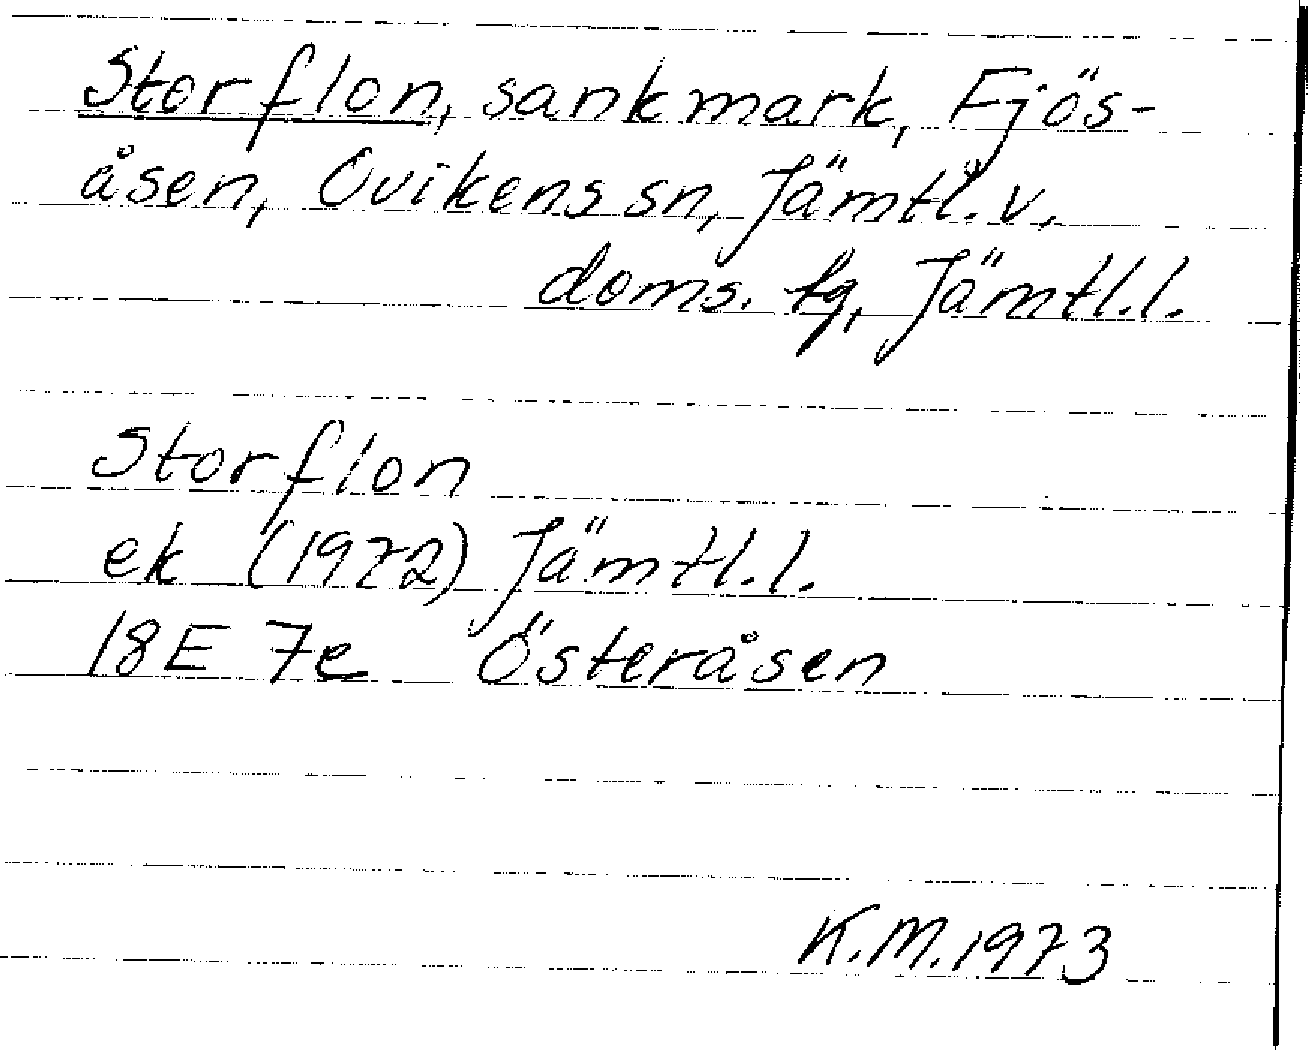 Storflon, sankmark, Fjös-
åsen, Ovikens sn, Jämtl. v.
doms. tg, Jämtl.l.
Storflon
ek (1972) Jämtl.l.
18E 7e Österåsen
K.M.1973